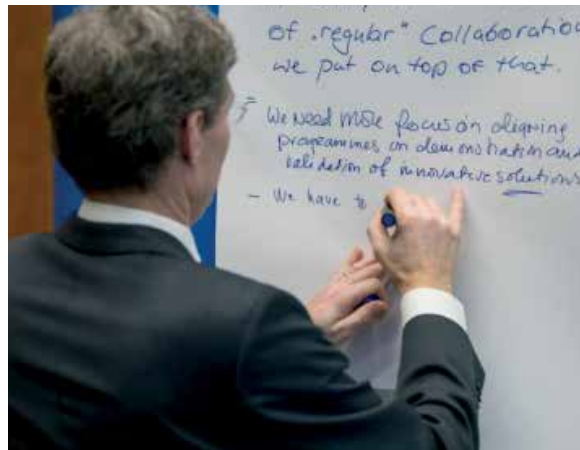 of „regular" Collaboration
we put on top of that.
- We need more focus on aligning
programmes on demonstration and
validation of innovative solutions
- We have to